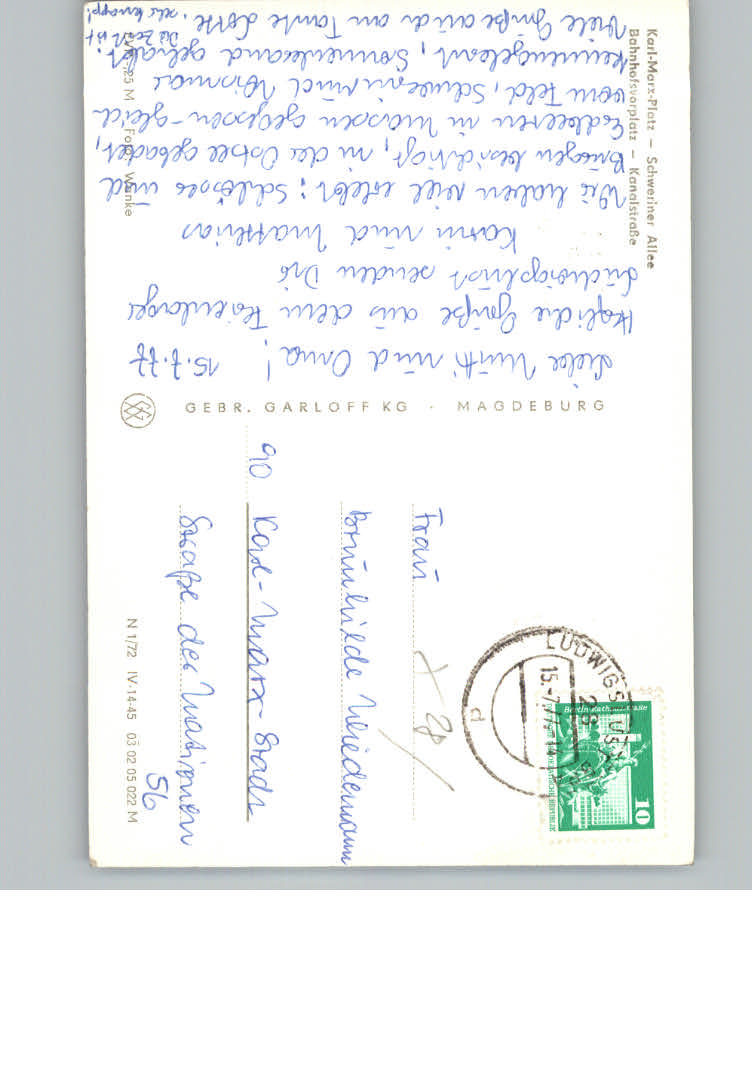 Karl-Marx-Platz – Schweriner Allee
Bahnhofsvorplatz – Kanalstraße
Liebe Mutti und Oma! 15.7.77
Herzliche Grüße aus dem Ferienlager
Ludwigslust senden Dir
Karin und Matthias
Wir haben viel erlebt: Schlösser und
Burgen besichtigt, in der Ostsee gebadet,
Erdbeeren in Massen gegessen – gleich
vom Feld, Schwerin und Wismar
kennengelernt, Sonnenbrand gehabt.
Viele Grüße auch an Tante Lotte.
Die Zeit ist
sehr knapp!
25 M Foto: Warnke
GEBR. GARLOFF KG · MAGDEBURG
Frau
Brunhilde Wiedemann
90 Karl-Marx-Stadt
Straße der Nationen
56
N 1/72 IV-14-45 03 02 05 022 M
LUDWIGSLUST
15.-7.77-14
d
10